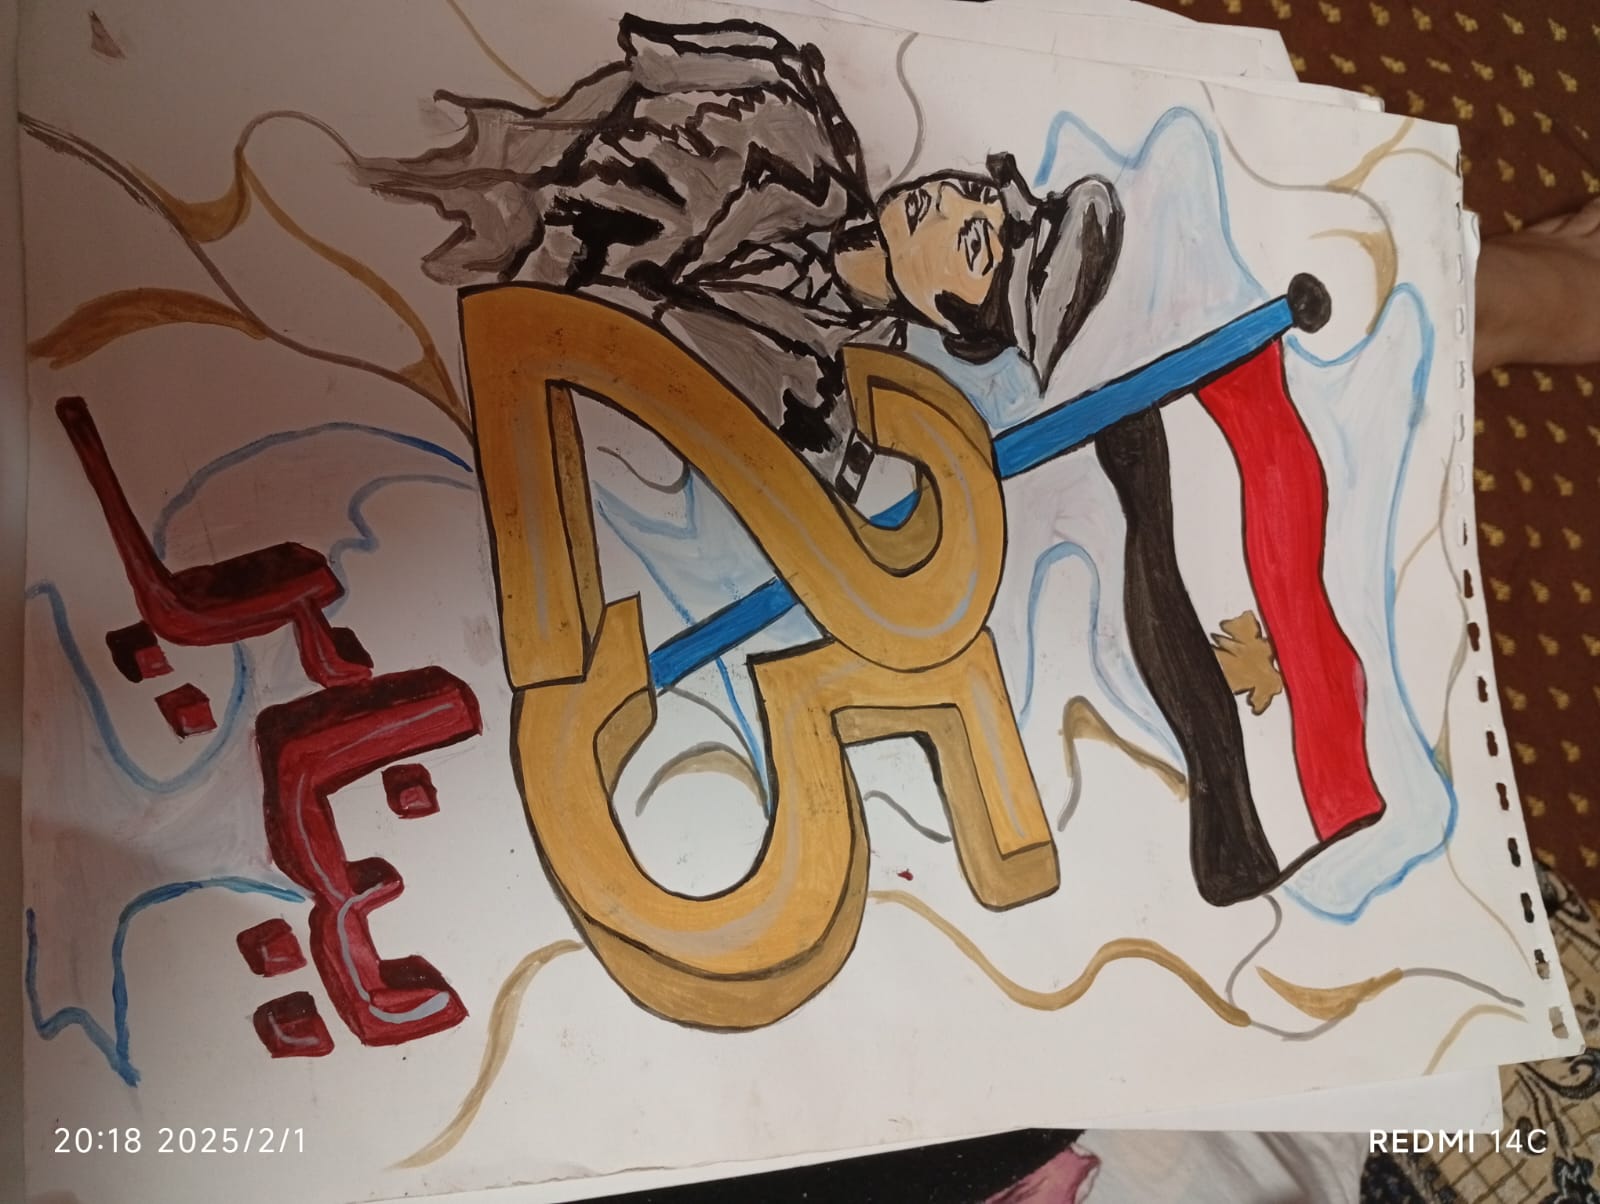 25
يناير
20:18 2025/2/1
REDMI 14C